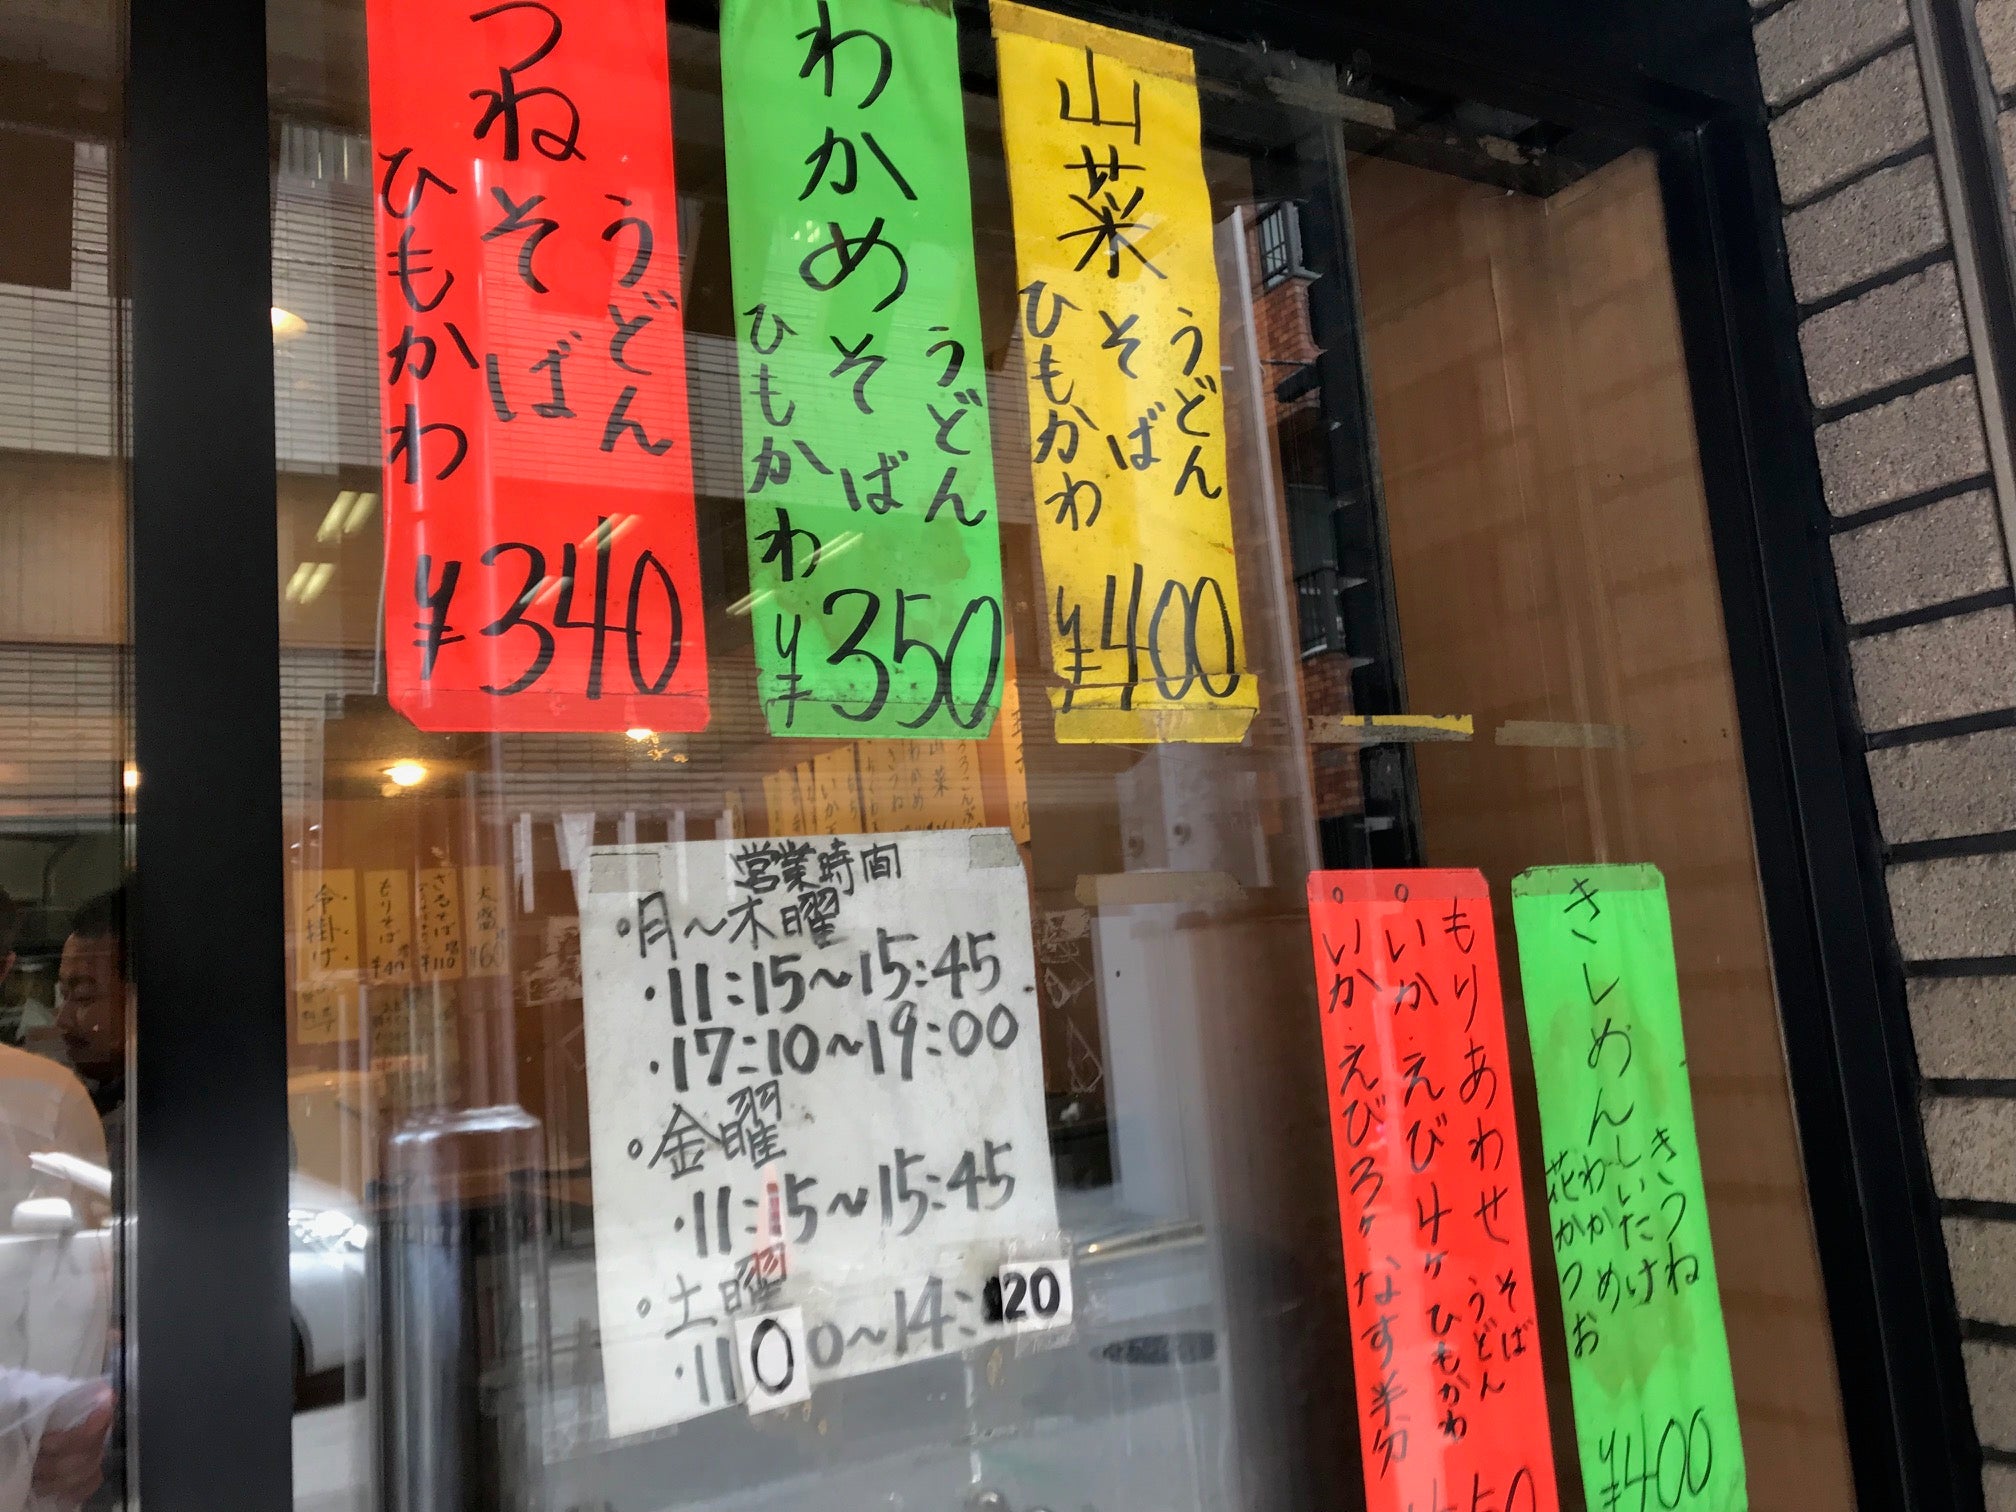 つね
うどん
そば
ひもかわ
¥340
わかめ
うどん
そば
ひもかわ
¥350
山菜
うどん
そば
ひもかわ
¥400
営業時間
○月〜木曜
・11:15〜15:45
・17:10〜19:00
○金曜
・11:15〜15:45
○土曜
・11 00〜14:20
もりあわせ
そば
うどん
ひもかわ
○いか.えび4ヶ
○いか.えび3ヶなす半分
50
きしめん
きつね
しいたけ
わかめ
花かつお
¥400
もりそば
大盛
¥60
山菜
わかめ
きつね